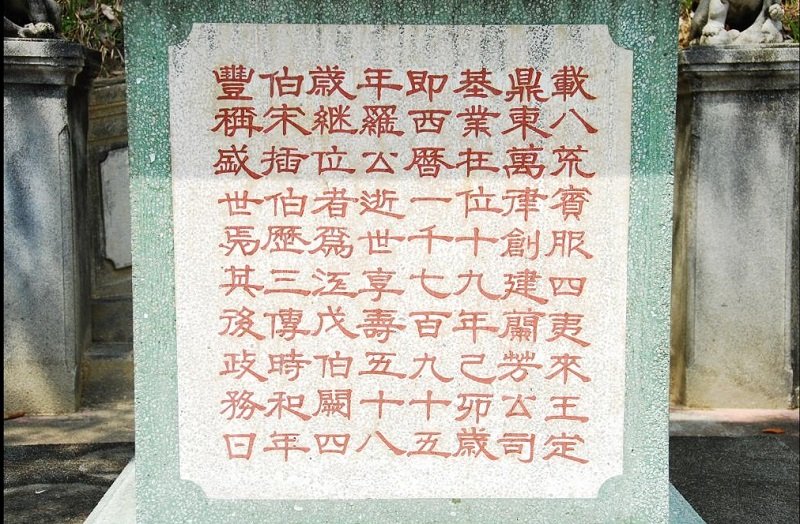 載八荒賓服四夷來王定
鼎東萬律創建蘭芳公司
基業在位十九年己卯歲
即西曆一千七百九十五
年羅公逝世享壽五十八
歲継位者爲江戊伯闕四
伯宋插伯歷三傳時和年
豐稱盛世焉其後政務日